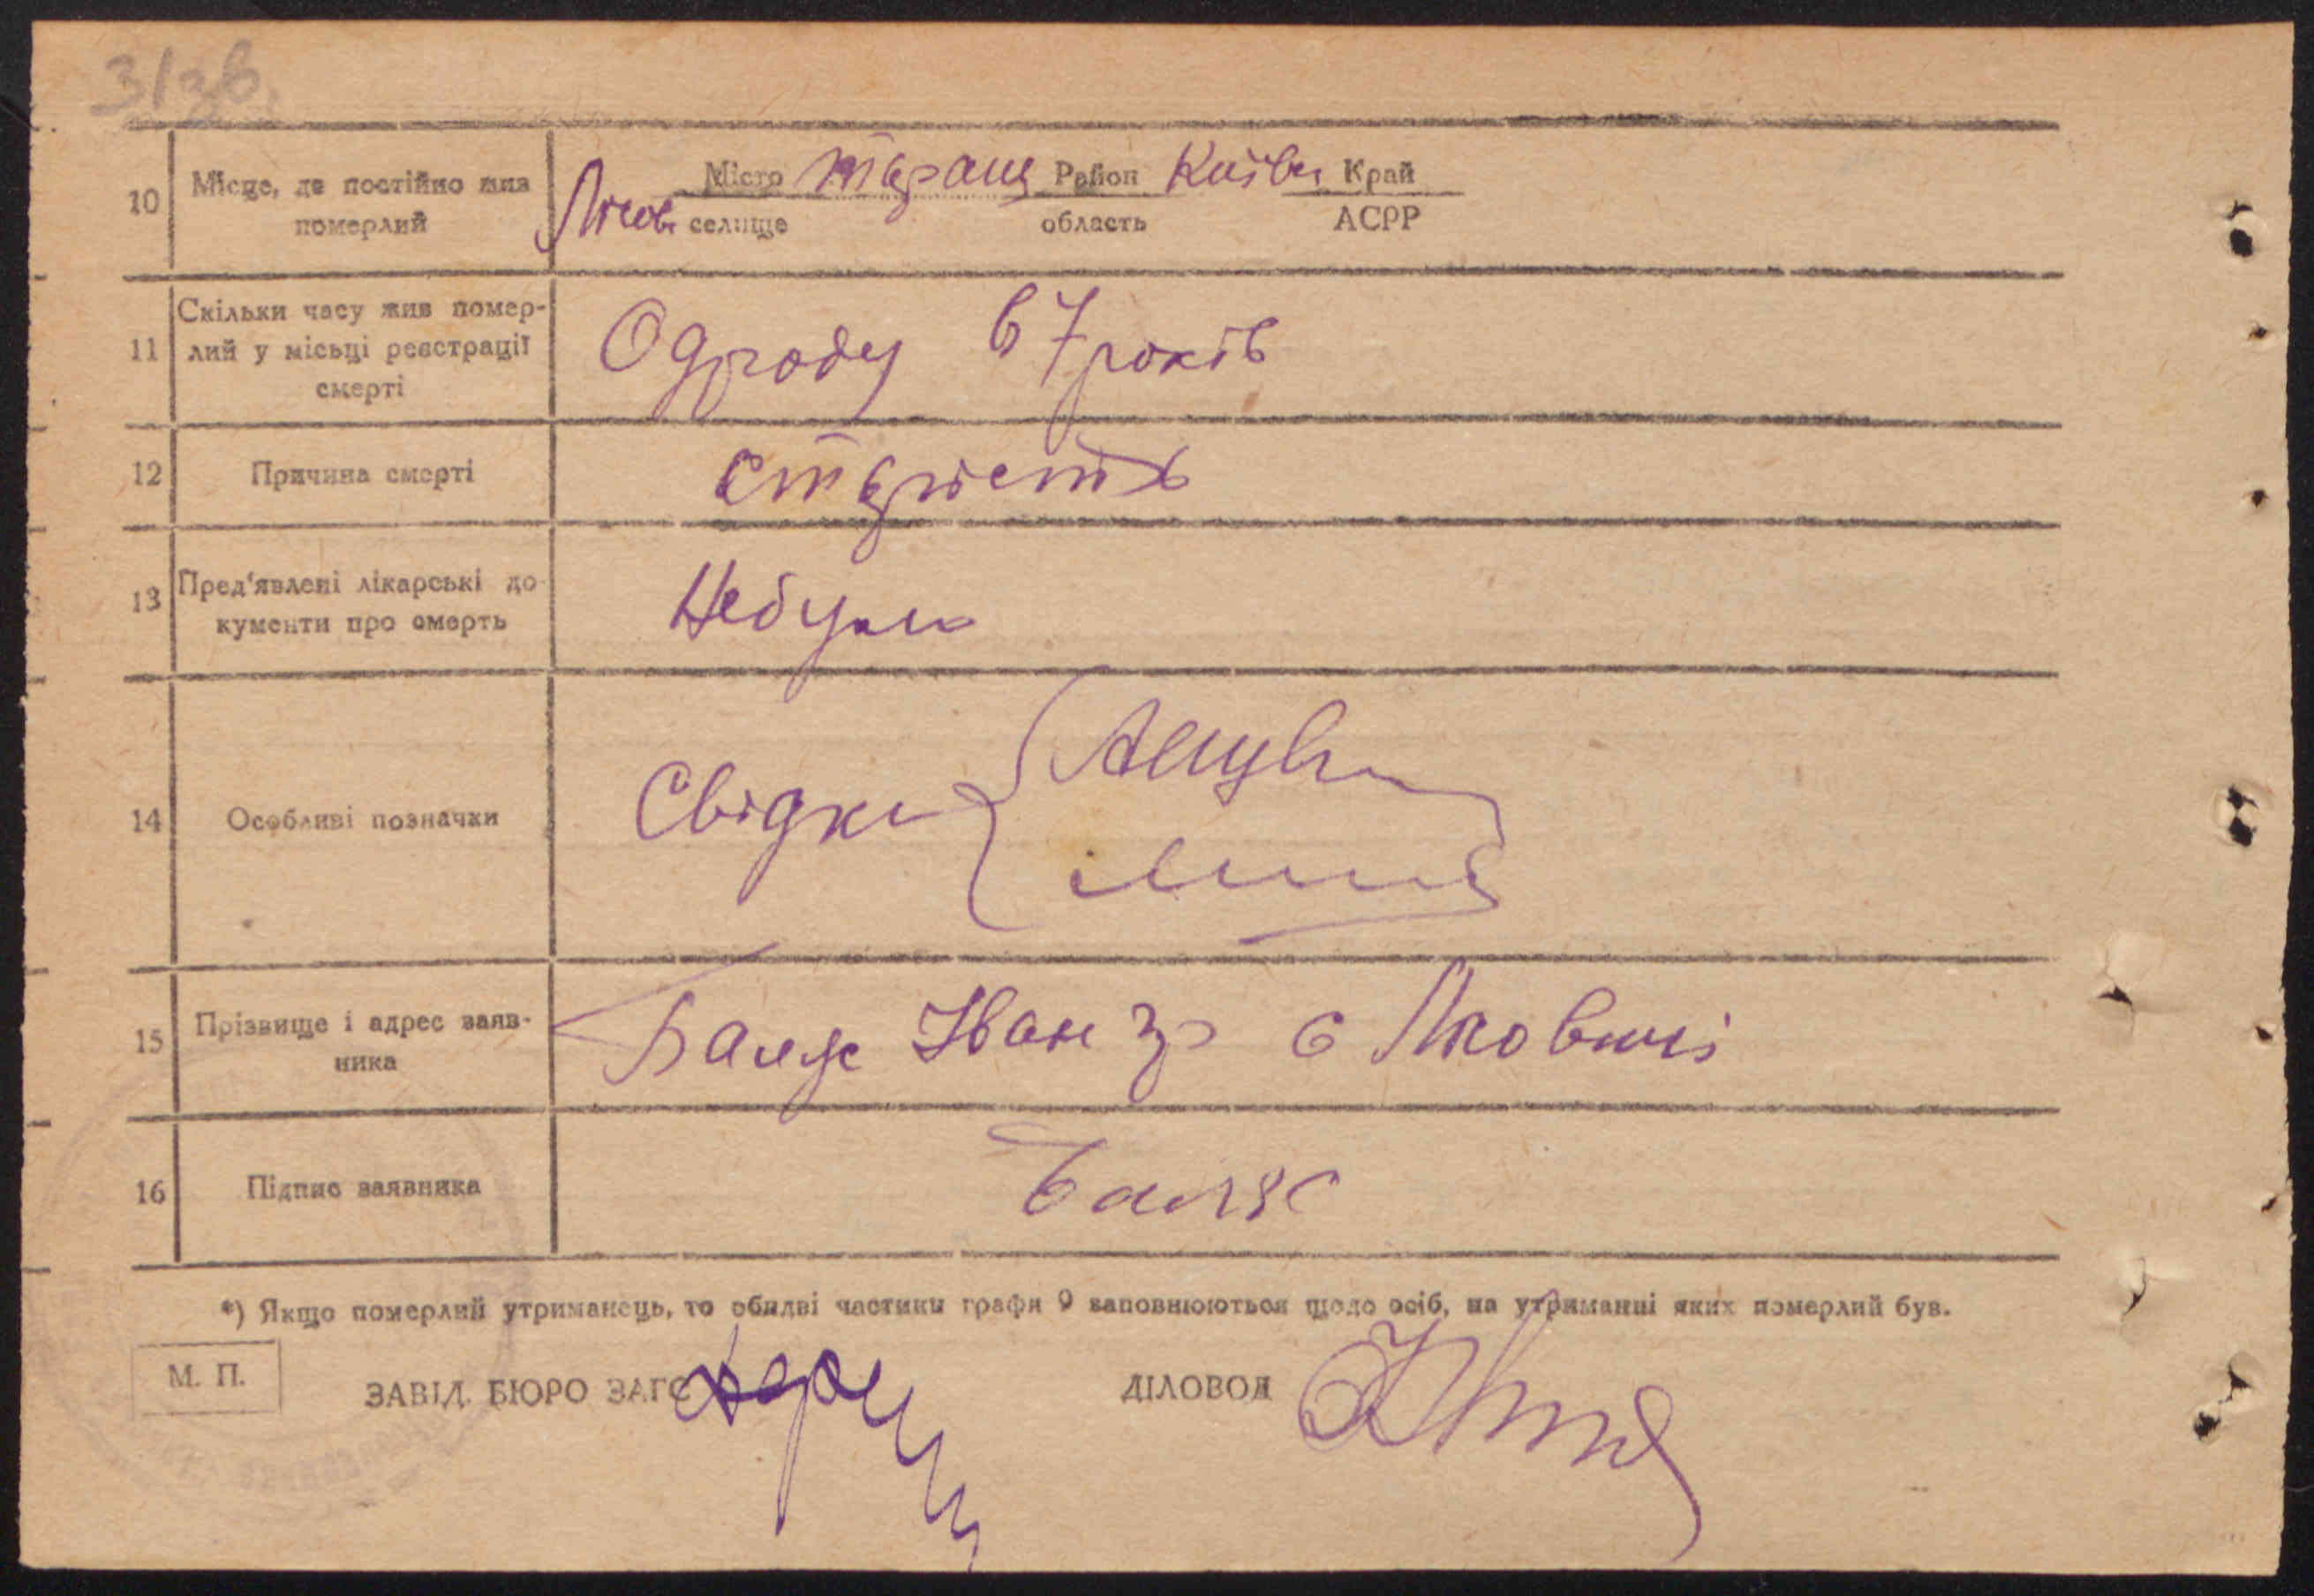 31зв.
10 Місце, де постійно жив
померлий
Місто Тараща Район Київськ Край
селище область АСРР
11 Скільки часу жив помер-
лий у місьці реєстрації
смерті
Одроду 67 років
12 Причина смерті
старість
13 Пред'явлені лікарські до
кументи про смерть
Небули
14 Особливі позначки
Свідки
15 Прізвище і адрес заяв-
ника
Іван с Лковичі
16 Підпис заявника
*) Якщо померлий утриманець, то обидві частини графи 9 заповнюються щодо осіб, на утриманні яких померлий був.
М. П.
ЗАВІД. БЮРО ЗАГС ДІЛОВОД